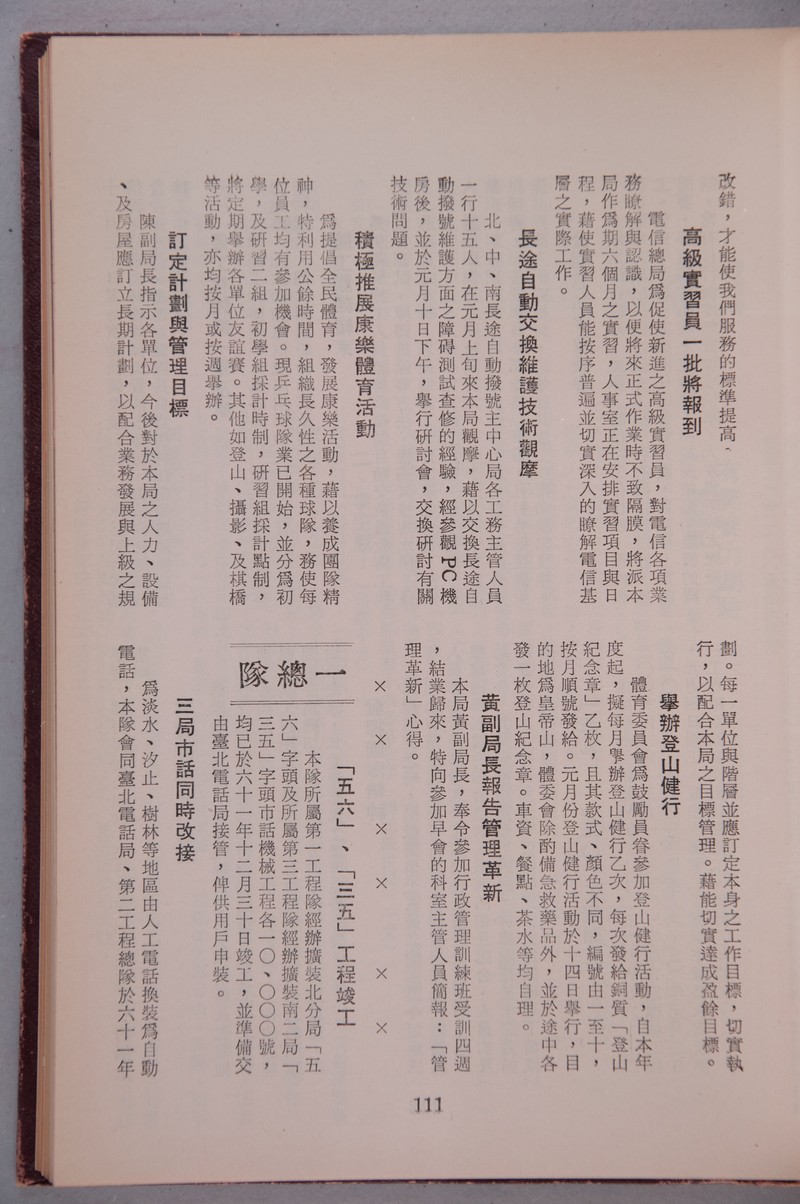 改錯，才能使我們服務的標準提高、
高級實習員一批將報到
電信總局爲促使新進之高級實習員，對電信各項業
務瞭解與認識，以便將來正式作業時不致隔膜，將派本
局作爲期六個月之實習，人事室正在安排實習項目與日
程，藉使實習人員能按序普遍並切實深入的瞭解電信基
層之實際工作。
長途自動交換維護技術觀摩
北、中、南長途自動撥號主中心局各工務主管人員
一行十五人，在元月上旬來本局觀摩，藉以交換長途自
動撥號維護方面之障碍測試查修的經驗，經參觀PC機
房後，並於元月十日下午，舉行研討會，交換研討有關
技術問題。
積極推展康樂體育活動
爲提倡全民體育，發展康樂活動，藉以養成團隊精
神，特利用公餘時間，組織長久性之各種球隊，務使每
位員工均有參加機會。現乒乓球隊業已開始，並分爲初
學，及研習二組，初學組採計時制，研習組採計點制，
將定期舉辦各單位友誼賽。其他如登山、攝影、及棋橋
等活動，亦均按月或按週舉辦。
訂定計劃與管理目標
陳副局長指示各單位，今後對於本局之人力、設備
、及房屋應訂立長期計劃，以配合業務發展與上級之規
劃。每一單位與階層並應訂定本身之工作目標，切實執
行，以配合本局之目標管理。藉能切實達成盈餘目標。
舉辦登山健行
體育委員會爲鼓勵員眷參加登山健行活動，自本年
度起，擬每月舉辦登山健行乙次，每次發給銅質「登山
紀念章」乙枚，且其款式、顏色不同，編號由一至十，
按月順號發給。元月份登山健行活動於十四日舉行，目
的地爲皇帝山，體委會除酌備急救藥品外，並於途中各
發一枚登山紀念章。車資、餐點、茶水等均自理。
黃副局長報告管理革新
本局黃副局長，奉令參加行政管理訓練班受訓四週
，結業歸來，特向參加早會的科室主管人員簡報：「管
理革新」心得。
× × × × × ×
一總隊
「五六」、「三五」工程竣工
本隊所屬第一工程隊經辦擴裝北分局「五
六」字頭及所屬第三工程隊經辦擴裝南二局「
三五」字頭市話機械工程各一〇、〇〇〇號，
均已於六十一年十二月三十日竣工，並準備交
由臺北電話局接管，俾供用戶申裝。
三局市話同時改接
爲淡水、汐止、樹林等地區由人工電話換裝爲自動
電話，本隊會同臺北電話局、第二工程總隊於六十一年
111